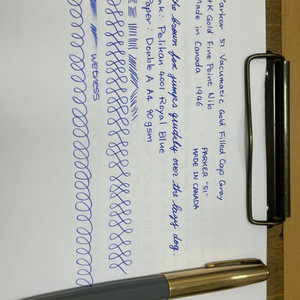 Parker 51 Vacumatic Gold Filled Cap Gray
14K Gold Fine Point Nib
Made in Canada 1946
PARKER "51"
MADE IN CANADA
the brown fox jumps quickly over the lazy dog.
Ink: Pelikan 4001 Royal Blue
Paper: Double A A4 90 gsm
wetness